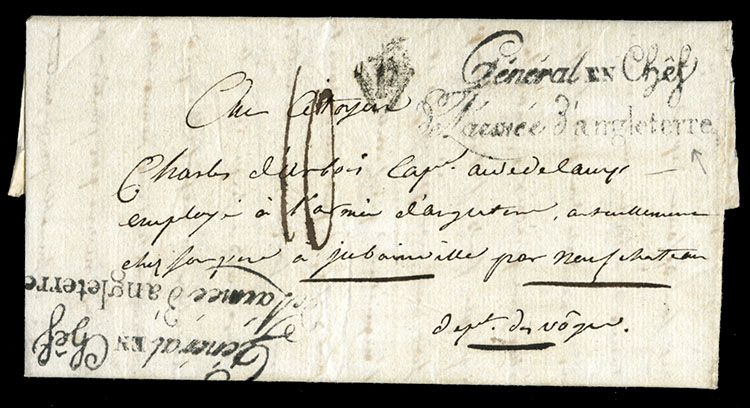 Général EN Chêf
de L'armée d'angleterre
Au Citoyen
10
Charles d'urbois Cap.ne aide de camp
employé à l'armée d'angleterre, actuellement
chez son pere à jubainville par neufchateau
dep.t des vôges.
Général EN Chêf
de L'armée d'angleterre